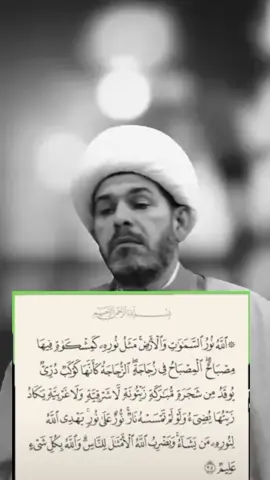 بِسْمِ ٱللَّهِ ٱلرَّحْمَٰنِ ٱلرَّحِيمِ
۞ ٱللَّهُ نُورُ ٱلسَّمَٰوَٰتِ وَٱلْأَرْضِ مَثَلُ نُورِهِۦ كَمِشْكَوٰةٍ فِيهَا
مِصْبَاحٌ ٱلْمِصْبَاحُ فِي زُجَاجَةٍ ٱلزُّجَاجَةُ كَأَنَّهَا كَوْكَبٌ دُرِّيٌّ
يُوقَدُ مِن شَجَرَةٍ مُّبَٰرَكَةٍ زَيْتُونَةٍ لَّا شَرْقِيَّةٍ وَلَا غَرْبِيَّةٍ يَكَادُ
زَيْتُهَا يُضِيٓءُ وَلَوْ لَمْ تَمْسَسْهُ نَارٌ نُّورٌ عَلَىٰ نُورٍ يَهْدِي ٱللَّهُ
لِنُورِهِۦ مَن يَشَآءُ وَيَضْرِبُ ٱللَّهُ ٱلْأَمْثَٰلَ لِلنَّاسِ وَٱللَّهُ بِكُلِّ شَيْءٍ
عَلِيمٌ ٣٥